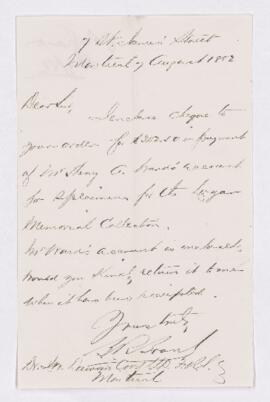 7 St. James Street
Montreal 9 August 1882
Dear Sir,
I enclose cheque to
your order for $202.50 in payment
of Mr Henry A. Ward's account
for specimens for the Logan
Memorial Collection.
Mr Ward's account is enclosed,
would you kindly return it to me
when it has been receipted.
Yours truly,
Dr. Wm. Dawson C.M.G. F.R.S.
Montreal